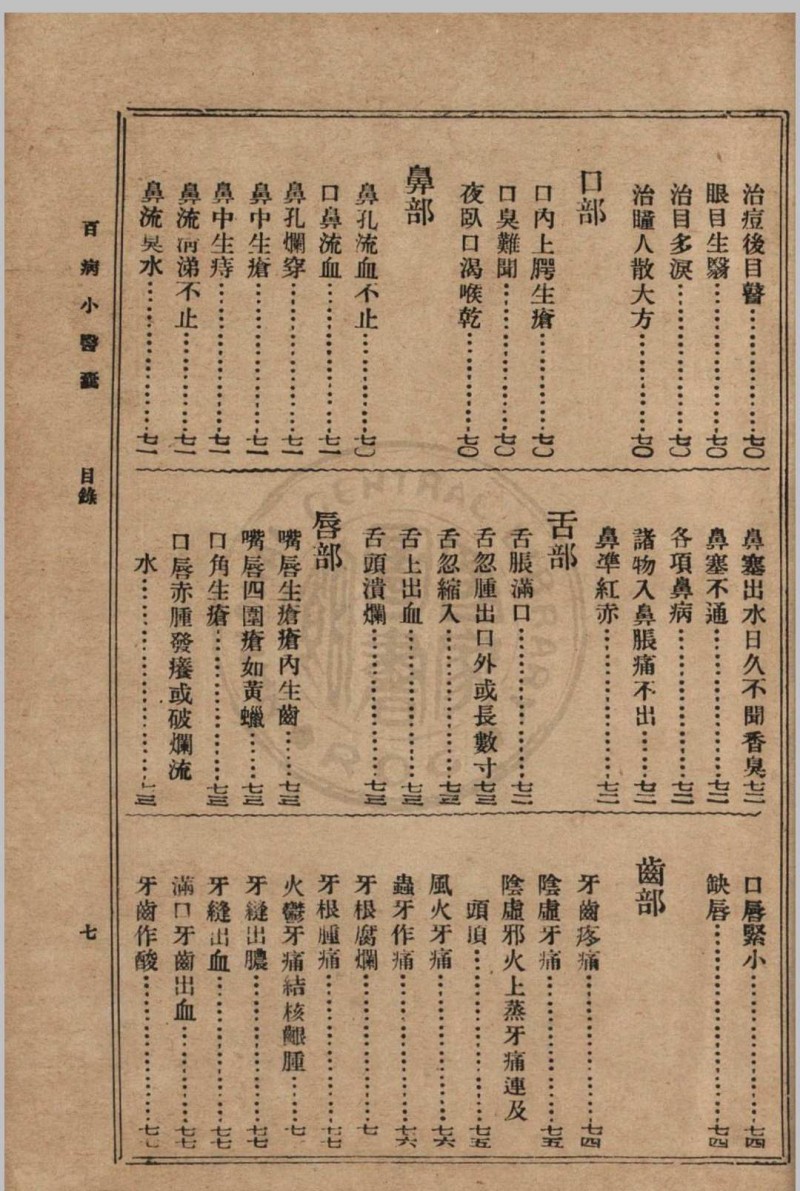 治痘後目瞖……七〇
眼目生翳……七〇
治目多淚……七〇
治瞳人散大方……七〇
口部
口內上腭生瘡……七〇
口臭難聞……七〇
夜臥口渴喉乾……七〇
鼻部
鼻孔流血不止……七〇
口鼻流血……七一
鼻孔爛穿……七一
鼻中生瘡……七一
鼻中生痔……七一
鼻流清涕不止……七一
鼻流臭水……七一
鼻塞出水日久不聞香臭七二
鼻塞不通……七二
各項鼻病……七二
諸物入鼻脹痛不出……七二
鼻準紅赤……七二
舌部
舌脹滿口……七二
舌忽腫出口外或長數寸七三
舌忽縮入……七三
舌上出血……七三
舌頭潰爛……七三
唇部
嘴唇生瘡瘡內生齒……七三
嘴唇四圍瘡如黃蠟……七三
口角生瘡……七三
口唇赤腫發癢或破爛流
水……七三
口唇緊小……七四
缺唇……七四
齒部
牙齒疼痛……七四
陰虛牙痛……七五
陰虛邪火上蒸牙痛連及
頭項……七五
風火牙痛……七六
蟲牙作痛……七六
牙根腐爛……七
牙根腫痛……七七
火鬱牙痛結核齦腫……七
牙縫出膿……七七
牙縫出血……七七
滿口牙齒出血……七七
牙齒作酸……七
百病小醫囊　目錄
七